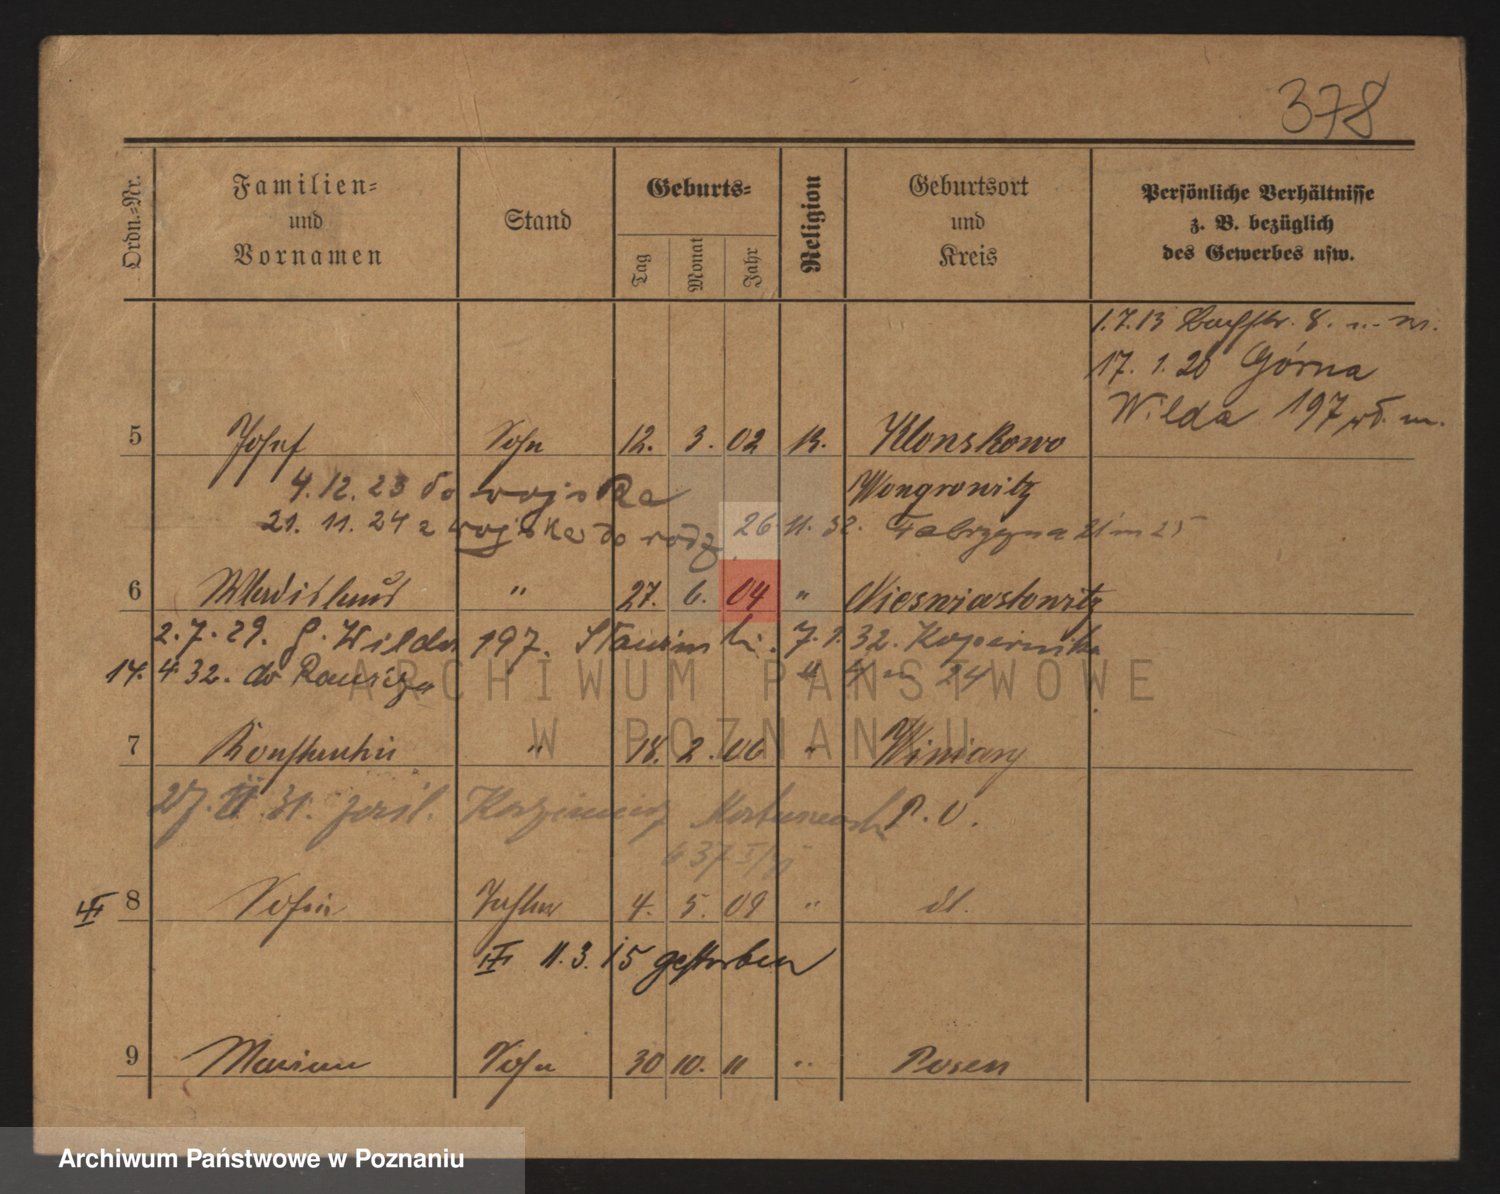 378
Ordn.-Nr.
Familien- und Vornamen
Stand
Geburts-
Tag
Monat
Jahr
Religion
Geburtsort und Kreis
Persönliche Verhältnisse
z. B. bezüglich
des Gewerbes usw.
1.7.13 Bachstr. 8.
17. 1. 20 Górna
Wilda 197
5 Josef Sohn 12. 3. 02 K. Klonskowo
4.12.23 do wojska Wongrowitz
21. 11. 24 z wojska do rodz. 26 11. 32. 
6 Wladislaus " 27. 6. 04 " Nieswiastowitz
2.7.29. G. Wilda 197. 7.1.32. Kopernika
14. 4 32. do 4 m 24
7 Konstantin " 18. 2. 06 " Winiary
27. II. 31. Kazimierz P. O.
637
8 Sofie Tochter 4. 5. 09 " dt.
11. 3. 15 gestorben
9 Marian Sohn 30 10. 11 " Posen
ARCHIWUM PAŃSTWOWE
W POZNANIU
Archiwum Państwowe w Poznaniu